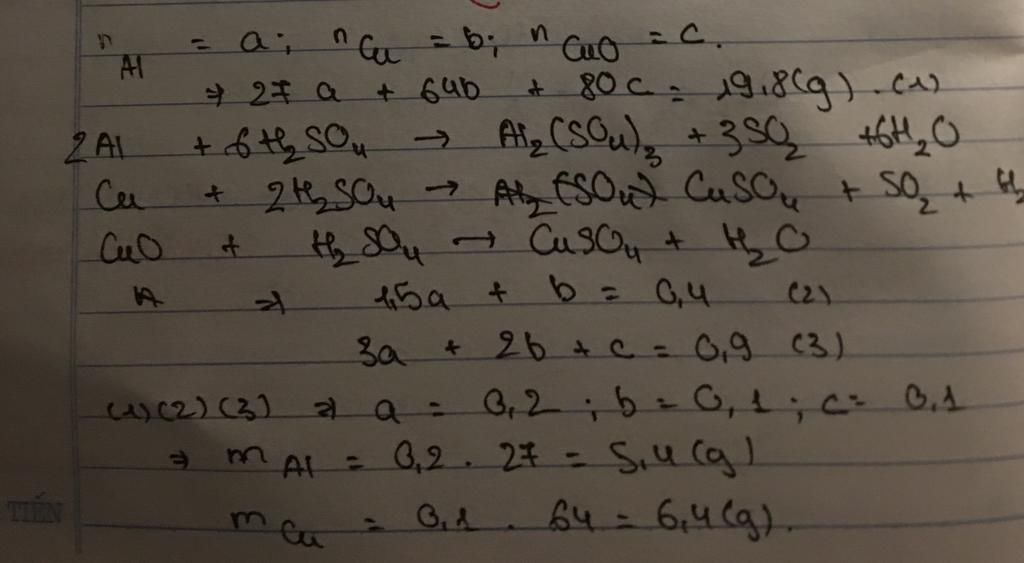 n Al = a; n Cu = b; n CuO = c.
⇒ 27a + 64b + 80c = 19,8(g). (1)
2Al + 6H₂SO₄ → Al₂(SO₄)₃ + 3SO₂ + 6H₂O
Cu + 2H₂SO₄ → CuSO₄ + SO₂ + H₂
CuO + H₂SO₄ → CuSO₄ + H₂O
⇒ 1,5a + b = 0,4 (2)
3a + 2b + c = 0,9 (3)
(1)(2)(3) ⇒ a = 0,2; b = 0,1; c = 0,1
⇒ m Al = 0,2 . 27 = 5,4(g)
TIẾN
m Cu = 0,1 . 64 = 6,4(g).